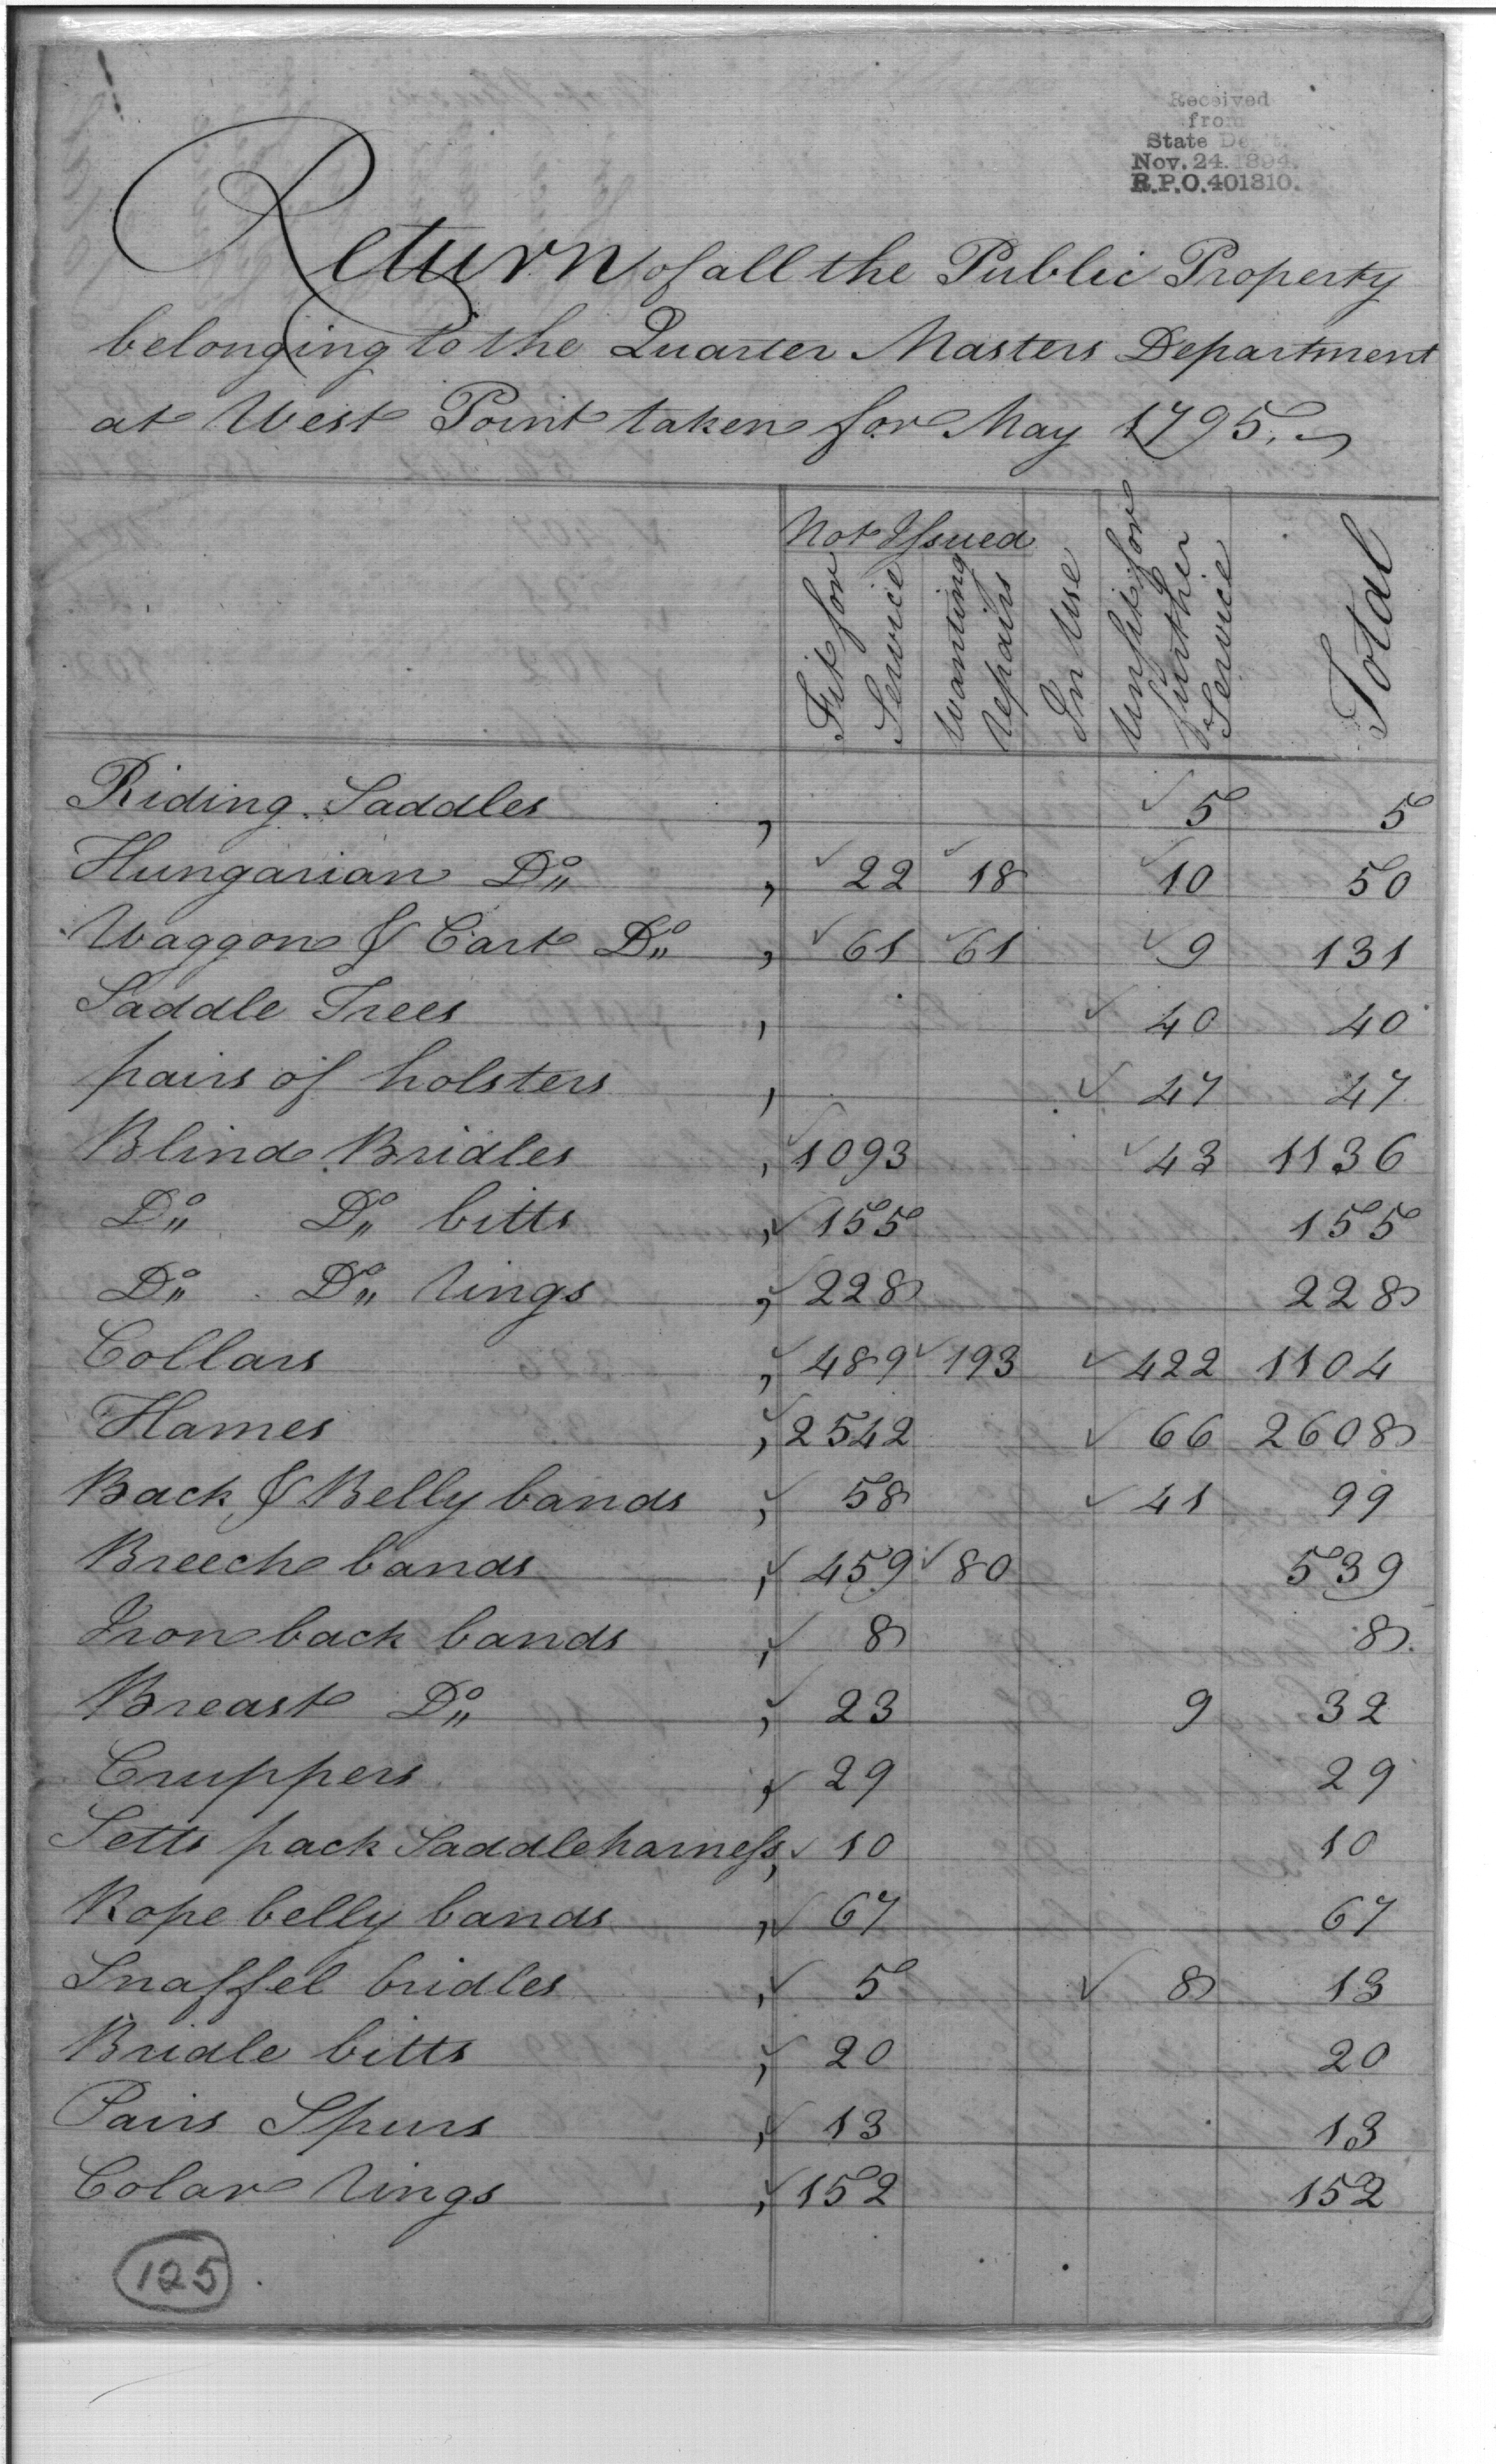 Received
from
State Dep't.
Nov. 24. 1894.
R.P.O. 401310.
Return of all the Public Property
belonging to the Quarter Masters Department
at West Point taken for May 1795.
Not Issued
Fit for Service
Wanting repairs
In Use
Unfit for further Service
Total
Riding Saddles , ✓ 5 5
Hungarian Do , ✓ 22 ✓ 18 ✓ 10 50
Waggon & Cart Do , ✓ 61 ✓ 61 ✓ 9 131
Saddle Trees , ✓ 40 40
pairs of holsters , ✓ 47 47
Blind Bridles , ✓ 1093 ✓ 43 1136
Do Do bitts , ✓ 155 155
Do Do rings , ✓ 228 228
Collars , ✓ 489 ✓ 193 ✓ 422 1104
Hames , ✓ 2542 ✓ 66 2608
Back & Belly bands , ✓ 58 ✓ 41 99
Breech bands , ✓ 459 ✓ 80 539
Iron back bands , ✓ 8 8
Breast Do , ✓ 23 9 32
Cruppers , ✓ 29 29
Setts pack Saddle harness , ✓ 10 10
Rope belly bands , ✓ 67 67
Snaffel bridles , ✓ 5 ✓ 8 13
Bridle bitts , ✓ 20 20
Pairs Spurs , ✓ 13 13
Colar rings , ✓ 152 152
125